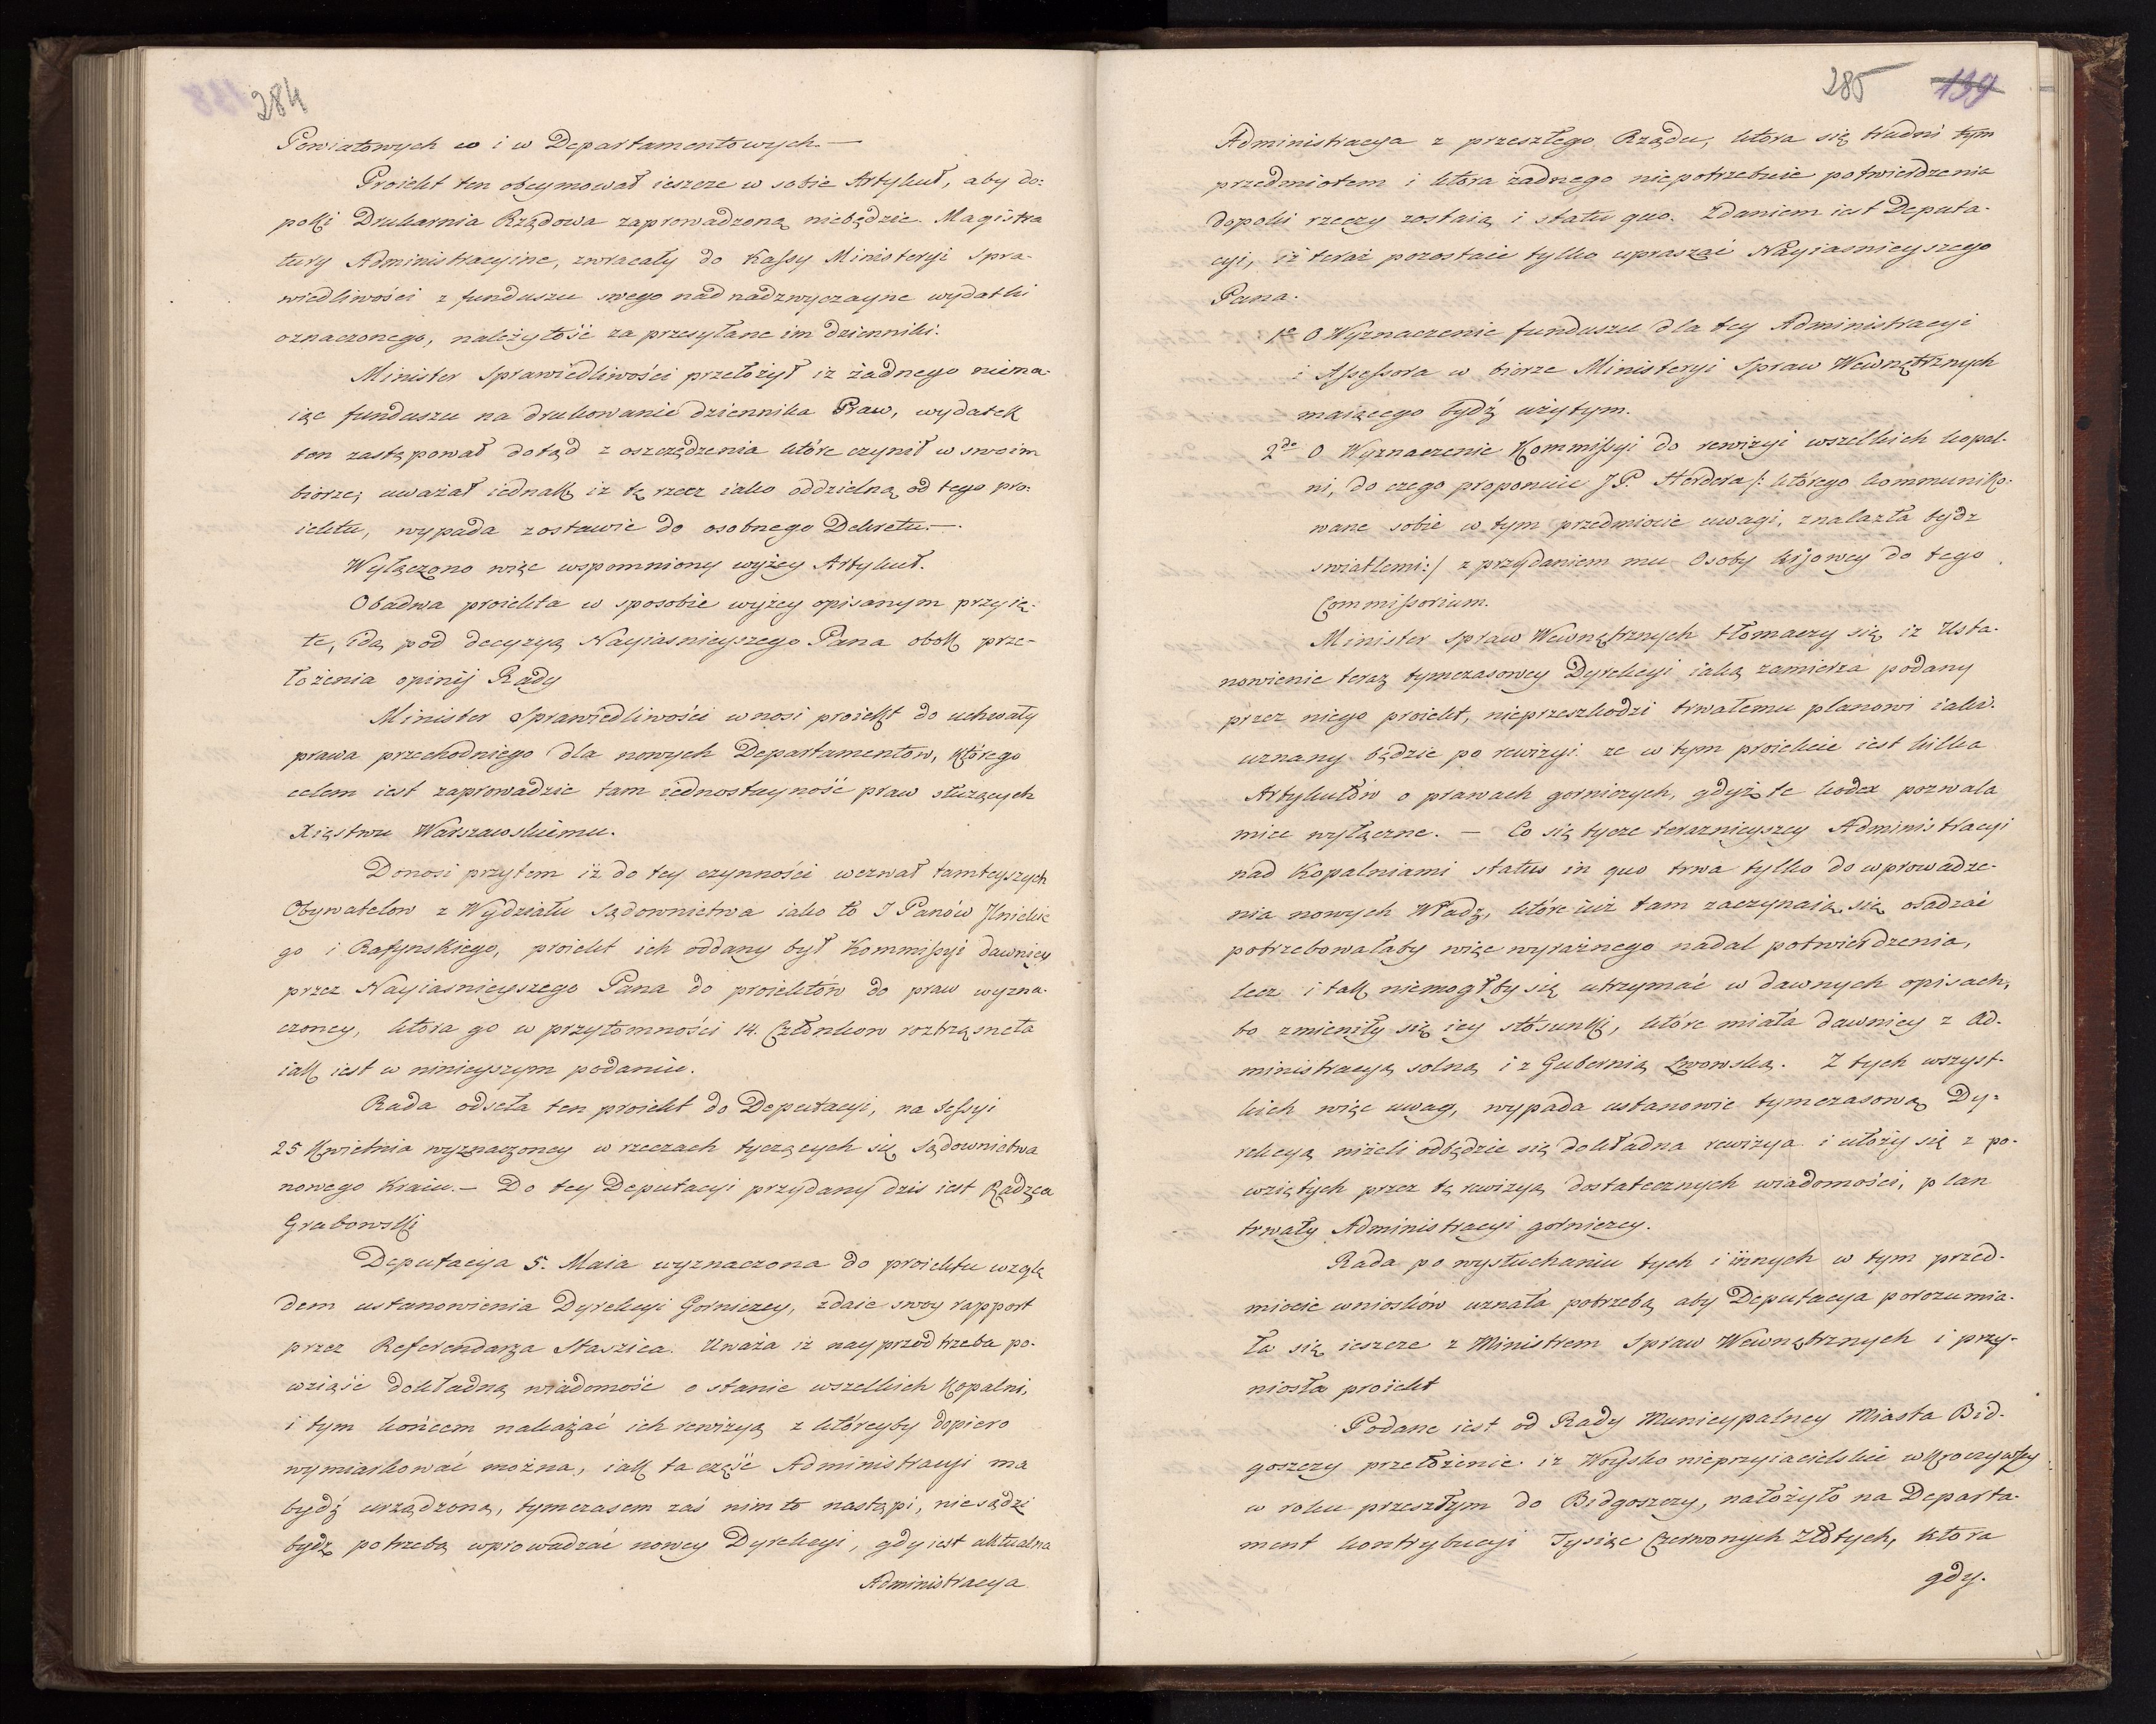 284
Powiatowych co i w Departamentowych.—
Proiekt ten obeymował ieszcze w sobie Artykuł, aby do:
poki Drukarnia Rządowa zaprowadzoną niebędzie. Magistra
tury Administracyine, zwracały do Kassy Ministeryi Spra-
wiedliwości z funduszu swego nad nadzwyczayne wydatki
oznaczonego, należytość za przesyłane im dzienniki.
Minister Sprawiedliwości przełożył iż żadnego niema-
iąc funduszu na drukowanie dziennika Praw, wydatek
ten zastępował dotąd z oszczędzenia które czynił w swoim
biorze; uważał iednak iż tę rzecz iako oddzielną od tego pro-
iektu, wypada zostawić do osobnego Dekretu.—.
Wyłączono więc wspomniony wyżey Artykuł.
Obadwa proiekta w sposobie wyżey opisanym przyię-
te, idą pod decyzyą Nayiasnieyszego Pana obok prze-
łożenia opinij Rady
Minister Sprawiedliwości wnosi proiekt do uchwały
prawa przechodniego dla nowych Departamentow, którego
celem iest zaprowadzić tam iednostayność praw służących
Xięstwu Warszawskiemu.
Donosi przytem iż do tey czynności wezwał tamteyszych
Obywatelow z Wydziału Sądownictwa iako to J Panów Ilnickie
go i Rafynskiego, proiekt ich oddany był Kommissyi dawniey
przez Nayiasnieyszego Pana do proiektów do praw wyzna-
czoney, ktora go w przytomności 14. Członkow roztrząsneła
iak iest w ninieyszym podaniu.
Rada odseła ten proiekt do Deputacyi, na Sessyi
25 Kwietnia wyznaczoney w rzeczach tyczących się Sądownictwa
nowego Kraiu.— Do tey Deputacyi przydany dzis iest Radzca
Grabowski
Deputacya 5. Maia wyznaczona do proiektu wzglę
dem ustanowienia Dyrekcyi Gorniczey, zdaie swoy rapport
przez Referendarza Staszica. Uważa iż nayprzod trzeba po-
wziąść dokładną wiadomość o stanie wszelkich Kopalni,
i tym końcem nakazać ich rewizyą z któreyby dopiero
wymiarkować można, iak ta część Administracyi ma
bydź urządzoną, tymczasem zaś nim to nastąpi, niesądzi
bydź potrzebą wprowadzać nowey Dyrekcyi, gdy iest aktualna
Administracya
285 139
Administracya z przeszłego Rządu, ktora się trudni tym
przedmiotem i ktora żadnego niepotrzebuie potwierdzenia
dopoki rzeczy zostaią i statu quo. Zdaniem iest Deputa-
cyi, iż teraz pozostaie tylko upraszać Nayiasnieyszego
Pana.
1o O Wyznaczenie funduszu dla tey Administracyi
i Assessora w biorze Ministeryi Spraw Wewnętrznych
maiącego bydź użytym.
2do O Wyznaczenie Kommissyi do rewizyi wszelkich kopal-
ni, do czego proponuie JP. Herdera /: którego kommuniko-
wane sobie w tym przedmiocie uwagi, znalazła bydz
swiatłemi :/ z przydaniem mu Osoby kraiowey do tego
Commissorium.
Minister Spraw Wewnętrznych tłomaczy się iż Usta-
nowienie teraz tymczasowey Dyrekcyi iaką zamierza podany
przez niego proiekt, nieprzeszkodzi trwałemu planowi iaki
uznany będzie po rewizyi. ze w tym proiekcie iest kilka
Artykułów o prawach gorniczych, gdyż te kodex pozwala
mieć wyłączne. — Co się tycze teraznieyszey Administracyi
nad Kopalniami status in quo trwa tylko do wprowadze-
nia nowych Władz, które iuż tam zaczynaią się osadzać
potrzebowałaby więc wyraźnego nadal potwierdzenia,
lecz i tak niemogłby się utrzymać w dawnych opisach,
bo zmieniły się iey stosunki, które miała dawniey z Ad-
ministracyą solną i z Gubernią Lwowską. Z tych wszyst-
kich więc uwag, wypada ustanowić tymczasową Dy-
rekcyą niżeli odbędzie się dokładna rewizya i ułoży się z po-
wziętych przez tę rewizyą dostatecznych wiadomości, plan
trwały Administracyi gorniczey.
Rada po wysłuchaniu tych i innych w tym przed-
miocie wniosków uznała potrzebą aby Deputacya porozumia-
ła się ieszcze z Ministrem Spraw Wewnętrznych i przy-
niosła proiekt
Podane iest od Rady Municypalney Miasta Bid-
goszczy przełożenie iż Woysko nieprzyiacielskie wkroczywszy
w roku przeszłym do Bidgoszczy, nałożyło na Departa-
ment kontrybucyi Tysiąc Czerwonych Złotych, ktora
gdy.